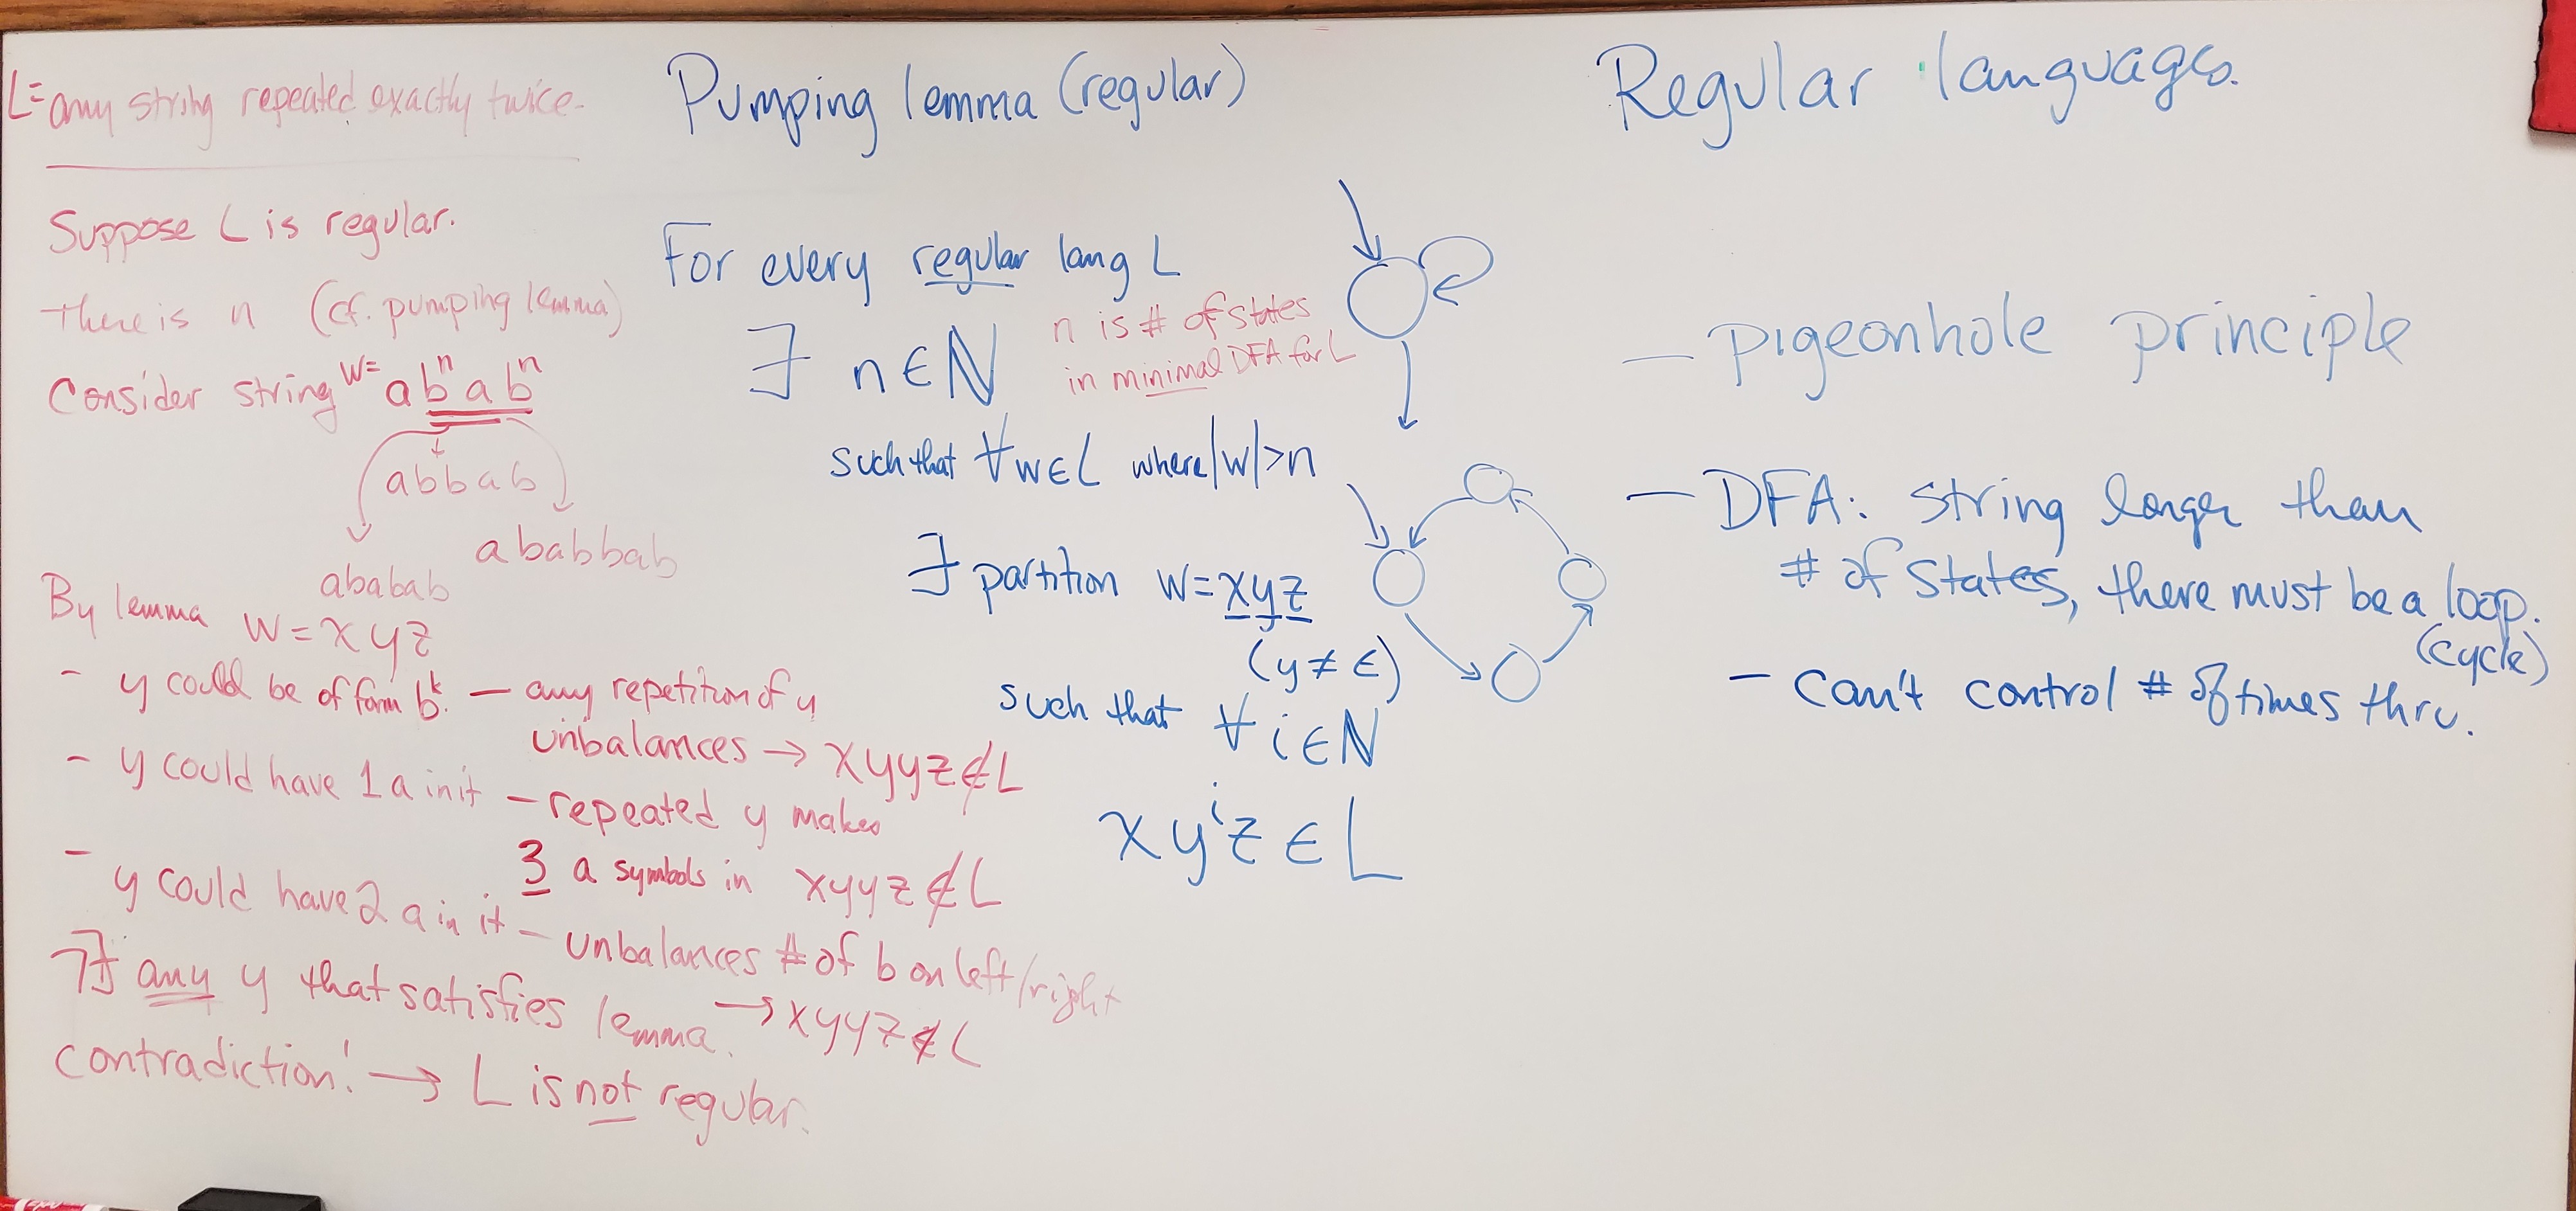 L= any string repeated exactly twice.
Suppose L is regular.
There is n (cf. pumping lemma)
Consider string w= abⁿabⁿ
abbab
ababbab
ababab
By lemma w = xyz
- y could be of form bᵏ. — any repetition of y
unbalances → xyyz ∉ L
- y could have 1 a in it — repeated y makes
3 a symbols in xyyz ∉ L
- y could have 2 a in it — unbalances # of b on left/right
→ xyyz ∉ L
¬∃ any y that satisfies lemma.
contradiction! → L is not regular.
Pumping lemma (regular)
For every regular lang L
∃ n ∈ ℕ
n is # of states
in minimal DFA for L
such that ∀ w ∈ L where |w| > n
∃ partition w = xyz
(y ≠ ε)
such that ∀ i ∈ ℕ
xyⁱz ∈ L
Regular languages.
— pigeonhole principle
— DFA: string longer than
# of states, there must be a loop.
(cycle)
- can't control # of times thru.